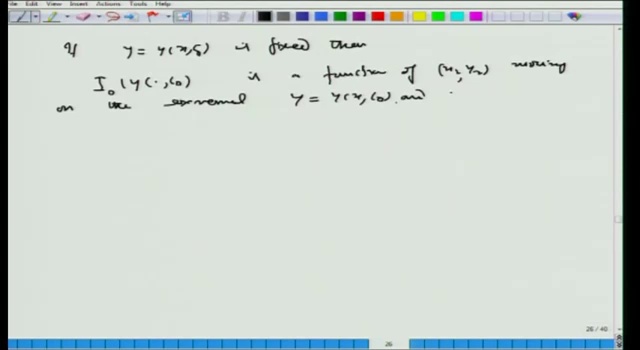 File Edit View Insert Actions Tools Help
If y = y(x, c₀) is fixed then
I₀(y(·, c₀) is a function of (x₂, y₂) moving
on the extremal y = y(x, c₀) and
26 / 40
26